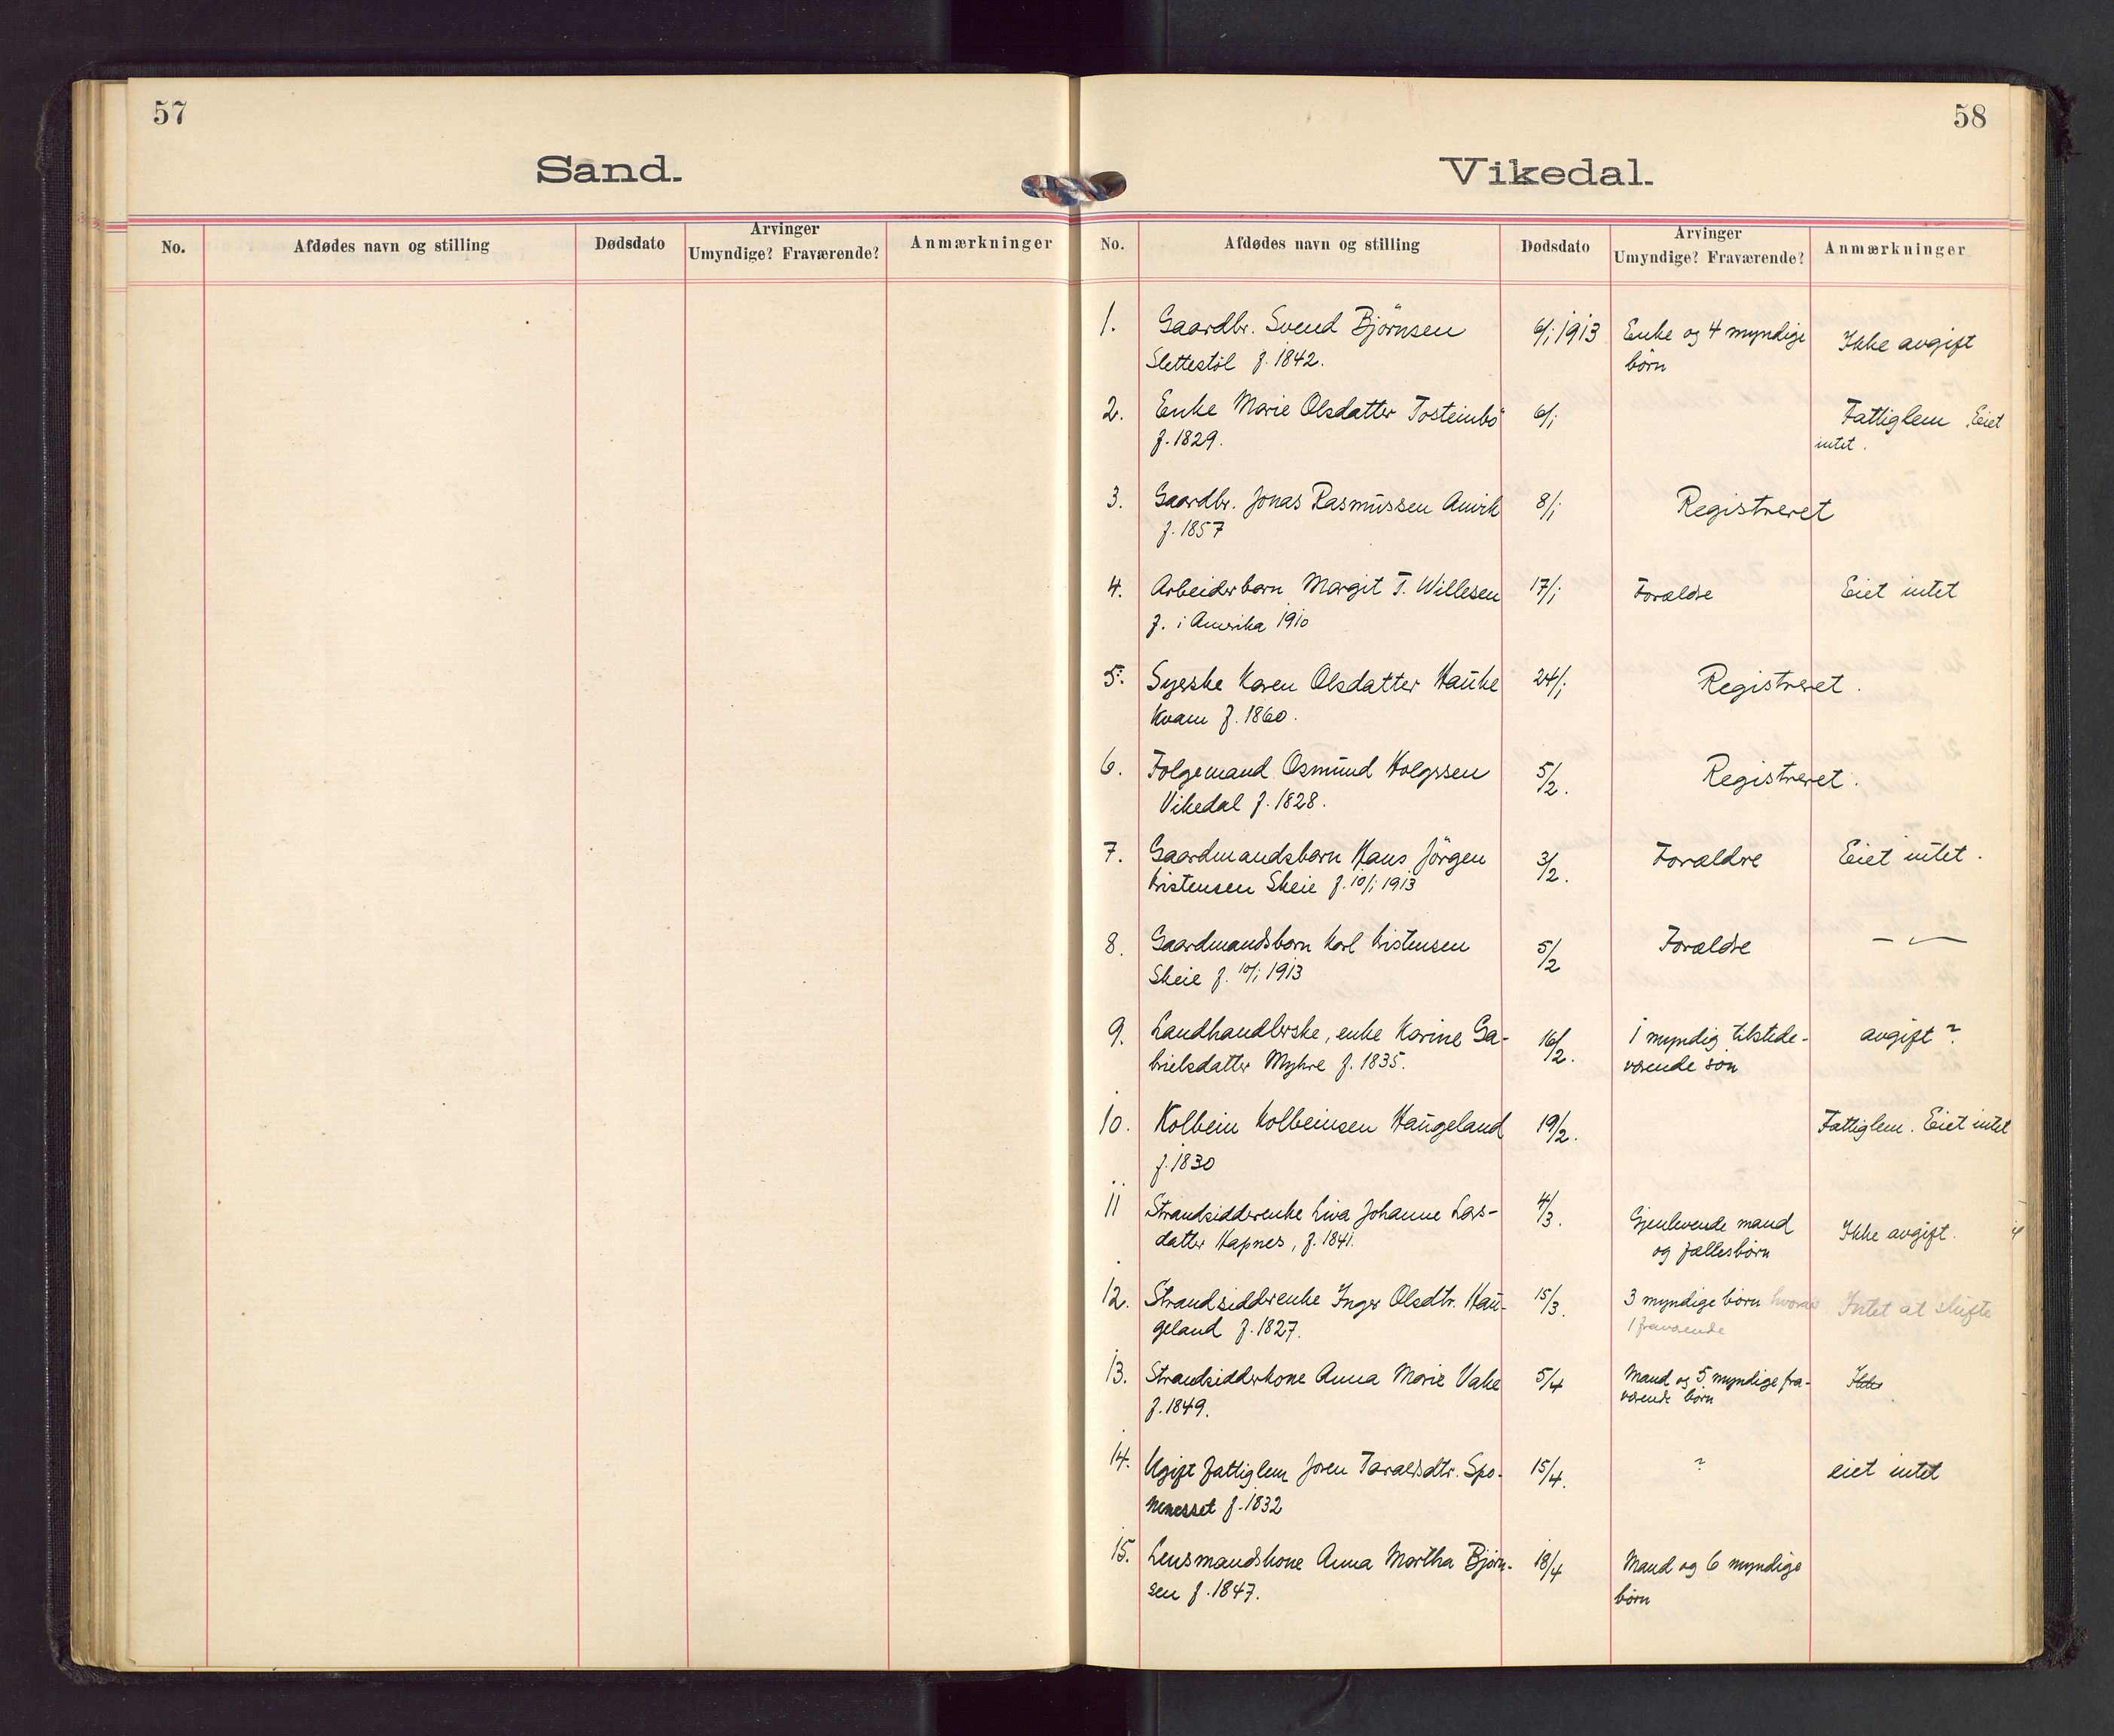 57
Sand.
No. Afdødes navn og stilling Dødsdato Arvinger Umyndige? Fraværende? Anmærkninger
58
Vikedal.
No. Afdødes navn og stilling Dødsdato Arvinger Umyndige? Fraværende? Anmærkninger
1. Gaardbr. Svend Bjørnsen 6/1 1913 Enke og 4 myndige Ikke avgift
Slettestøl f. 1842. børn
2. Enke Marie Olsdatter Tosteinbø 6/1 Fattiglem. Eiet
f. 1829. intet.
3. Gaardbr. Jonas Rasmussen Amvik 8/1 Registreret
f. 1857
4. Arbeiderbarn Margit T. Willesen 17/1 Forældre Eiet intet
f. i Amerika 1910
5. Syerske Karen Olsdatter Hauke 24/1 Registreret.
Kvam f. 1860.
6. Folgemand Osmund Holgssen 5/2. Registreret.
Vikedal f. 1828.
7. Gaardmandsbarn Hans Jørgen 3/2. Forældre Eiet intet.
Kristensen Skeie f. 10/1 1913
8. Gaardmandsbarn Karl Kristensen 5/2 Forældre — — 
Skeie f. 10/1 1913
9. Landhandlerske, enke Karine Ga- 16/2. 1 myndig tilstede- avgift?
brielsdatter Myhre f. 1835. værende søn
10. Kolbein Kolbeinsen Haugeland 19/2. Fattiglem. Eiet intet
f. 1830
11 Strandsidderenke Liva Johanne Lars- 4/3. Gjenlevende mand Ikke avgift.
datter Hapnes, f. 1841. og fællesbørn
12. Strandsidderenke Inger Olsdtr. Hau- 15/3. 3 myndige børn hvorav Intet at skifte
geland f. 1827. 1 fraværende
13. Strandsidderkone Anna Marie Vake 5/4 Mand og 5 myndige fra- Ikke
f. 1849. værende børn
14. Ugift fattiglem Joren Taraldsdtr. Spo- 15/4. ? eiet intet
nenesset f. 1832
15. Lensmandskone Anna Martha Bjørn- 18/4 Mand og 6 myndige
sen f. 1847. børn